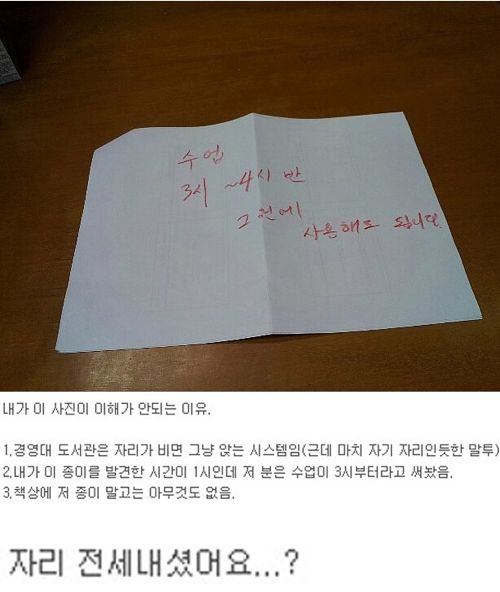 수업
3시 ~4시 반
그 전에
사용해도 됩니다
내가 이 사진이 이해가 안되는 이유.
1.경영대 도서관은 자리가 비면 그냥 앉는 시스템임(근데 마치 자기 자리인듯한 말투)
2.내가 이 종이를 발견한 시간이 1시인데 저 분은 수업이 3시부터라고 써놨음.
3.책상에 저 종이 말고는 아무것도 없음.
자리 전세내셨어요...?